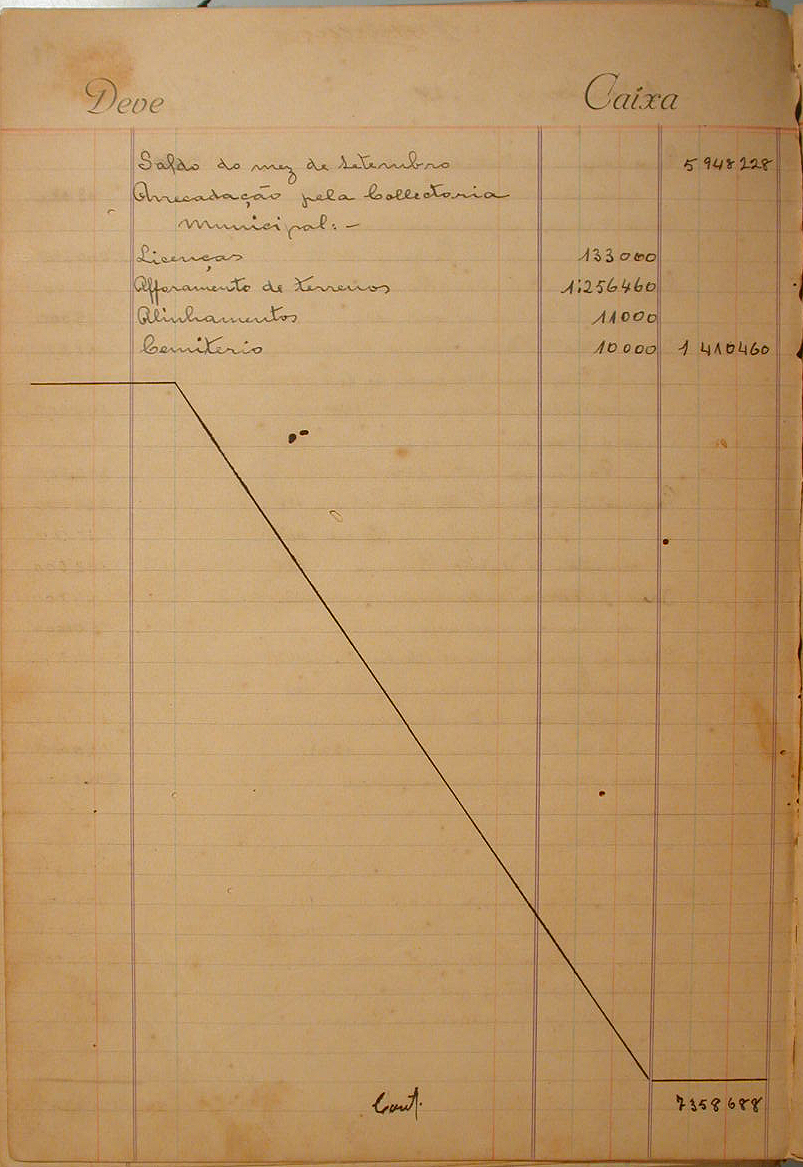 Deve Caixa
Saldo do mez de Setembro 5 948 228
Arrecadação pela Collectoria
Municipal: –
Licenças 133 000
Afforamento de terrenos 1:256460
Alinhamentos 11000
Cemiterio 10 000 1 410460
Cont. 7358688